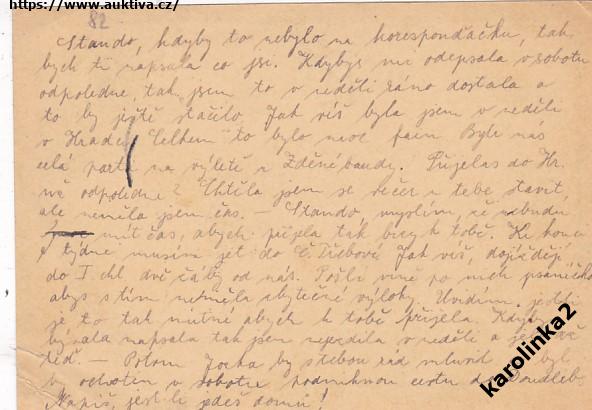 https://www.auktiva.cz/
82
Stando, kdyby to nebylo na korespondáčku, tak
bych ti napsala co jsi. Kdybys mi odepsala v sobotu
odpoledne, tak jsem to v neděli ráno dostala a
to by ještě stačilo. Jak víš byla jsem v neděli
v Hradci. Celkem to bylo moc fain. Byla nás
celá parta na výletě z Zděné boudy. Přijelas do Hr.
odpoledne? Chtěla jsem se večer u tebe stavit,
ale neměla jsem čas. – Stando, myslím, že nebudu
mít čas, abych přijela tak brzy k tobě. Ke konci
týdne musím jet do Č. Třebové. Jak víš, dojíždějí
do od nás. Pošli mně po nich psaníčko
abys s tím neměla zbytečné výlohy. Uvidím, jestli
je to tak nutné abych k tobě přijela. Kdybys
bývala napsala tak jsem v neděli a
teď. – Potom by s tebou rád mluvil byl
b ochoten v sobotu podniknou cestu do Doudleb.
Napiš, jestli jedeš domů!
karolinka2